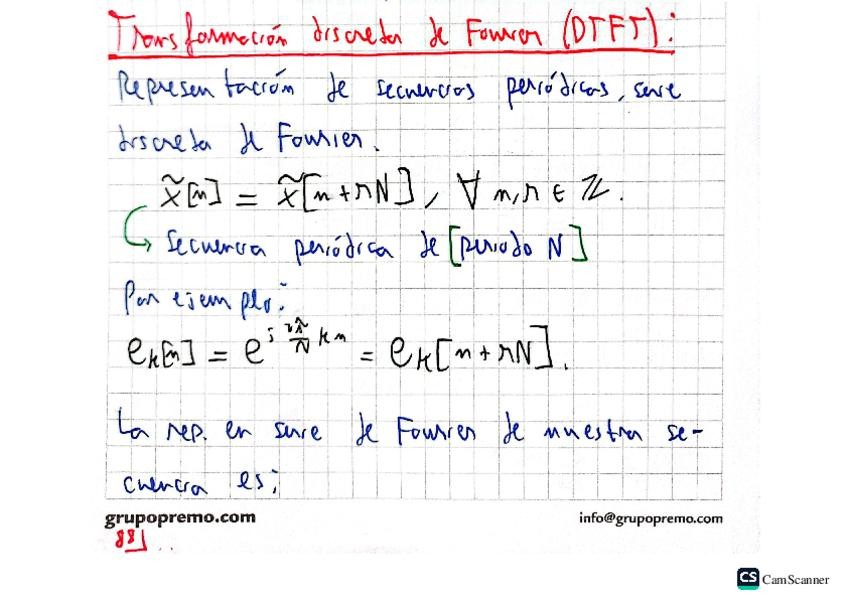 Transformación discreta de Fourier (DTFT):
Representación de secuencias periódicas, serie
discreta de Fourier.
x̃[n] = x̃[n+rN], ∀ n,r ∈ ℤ.
Secuencia periódica de [periodo N]
Por ejemplo:
e_k[n] = e^{j 2π/N kn} = e_k[n+rN].
La rep. en serie de Fourier de nuestra se-
cuencia es:
grupopremo.com info@grupopremo.com
88]
CS CamScanner